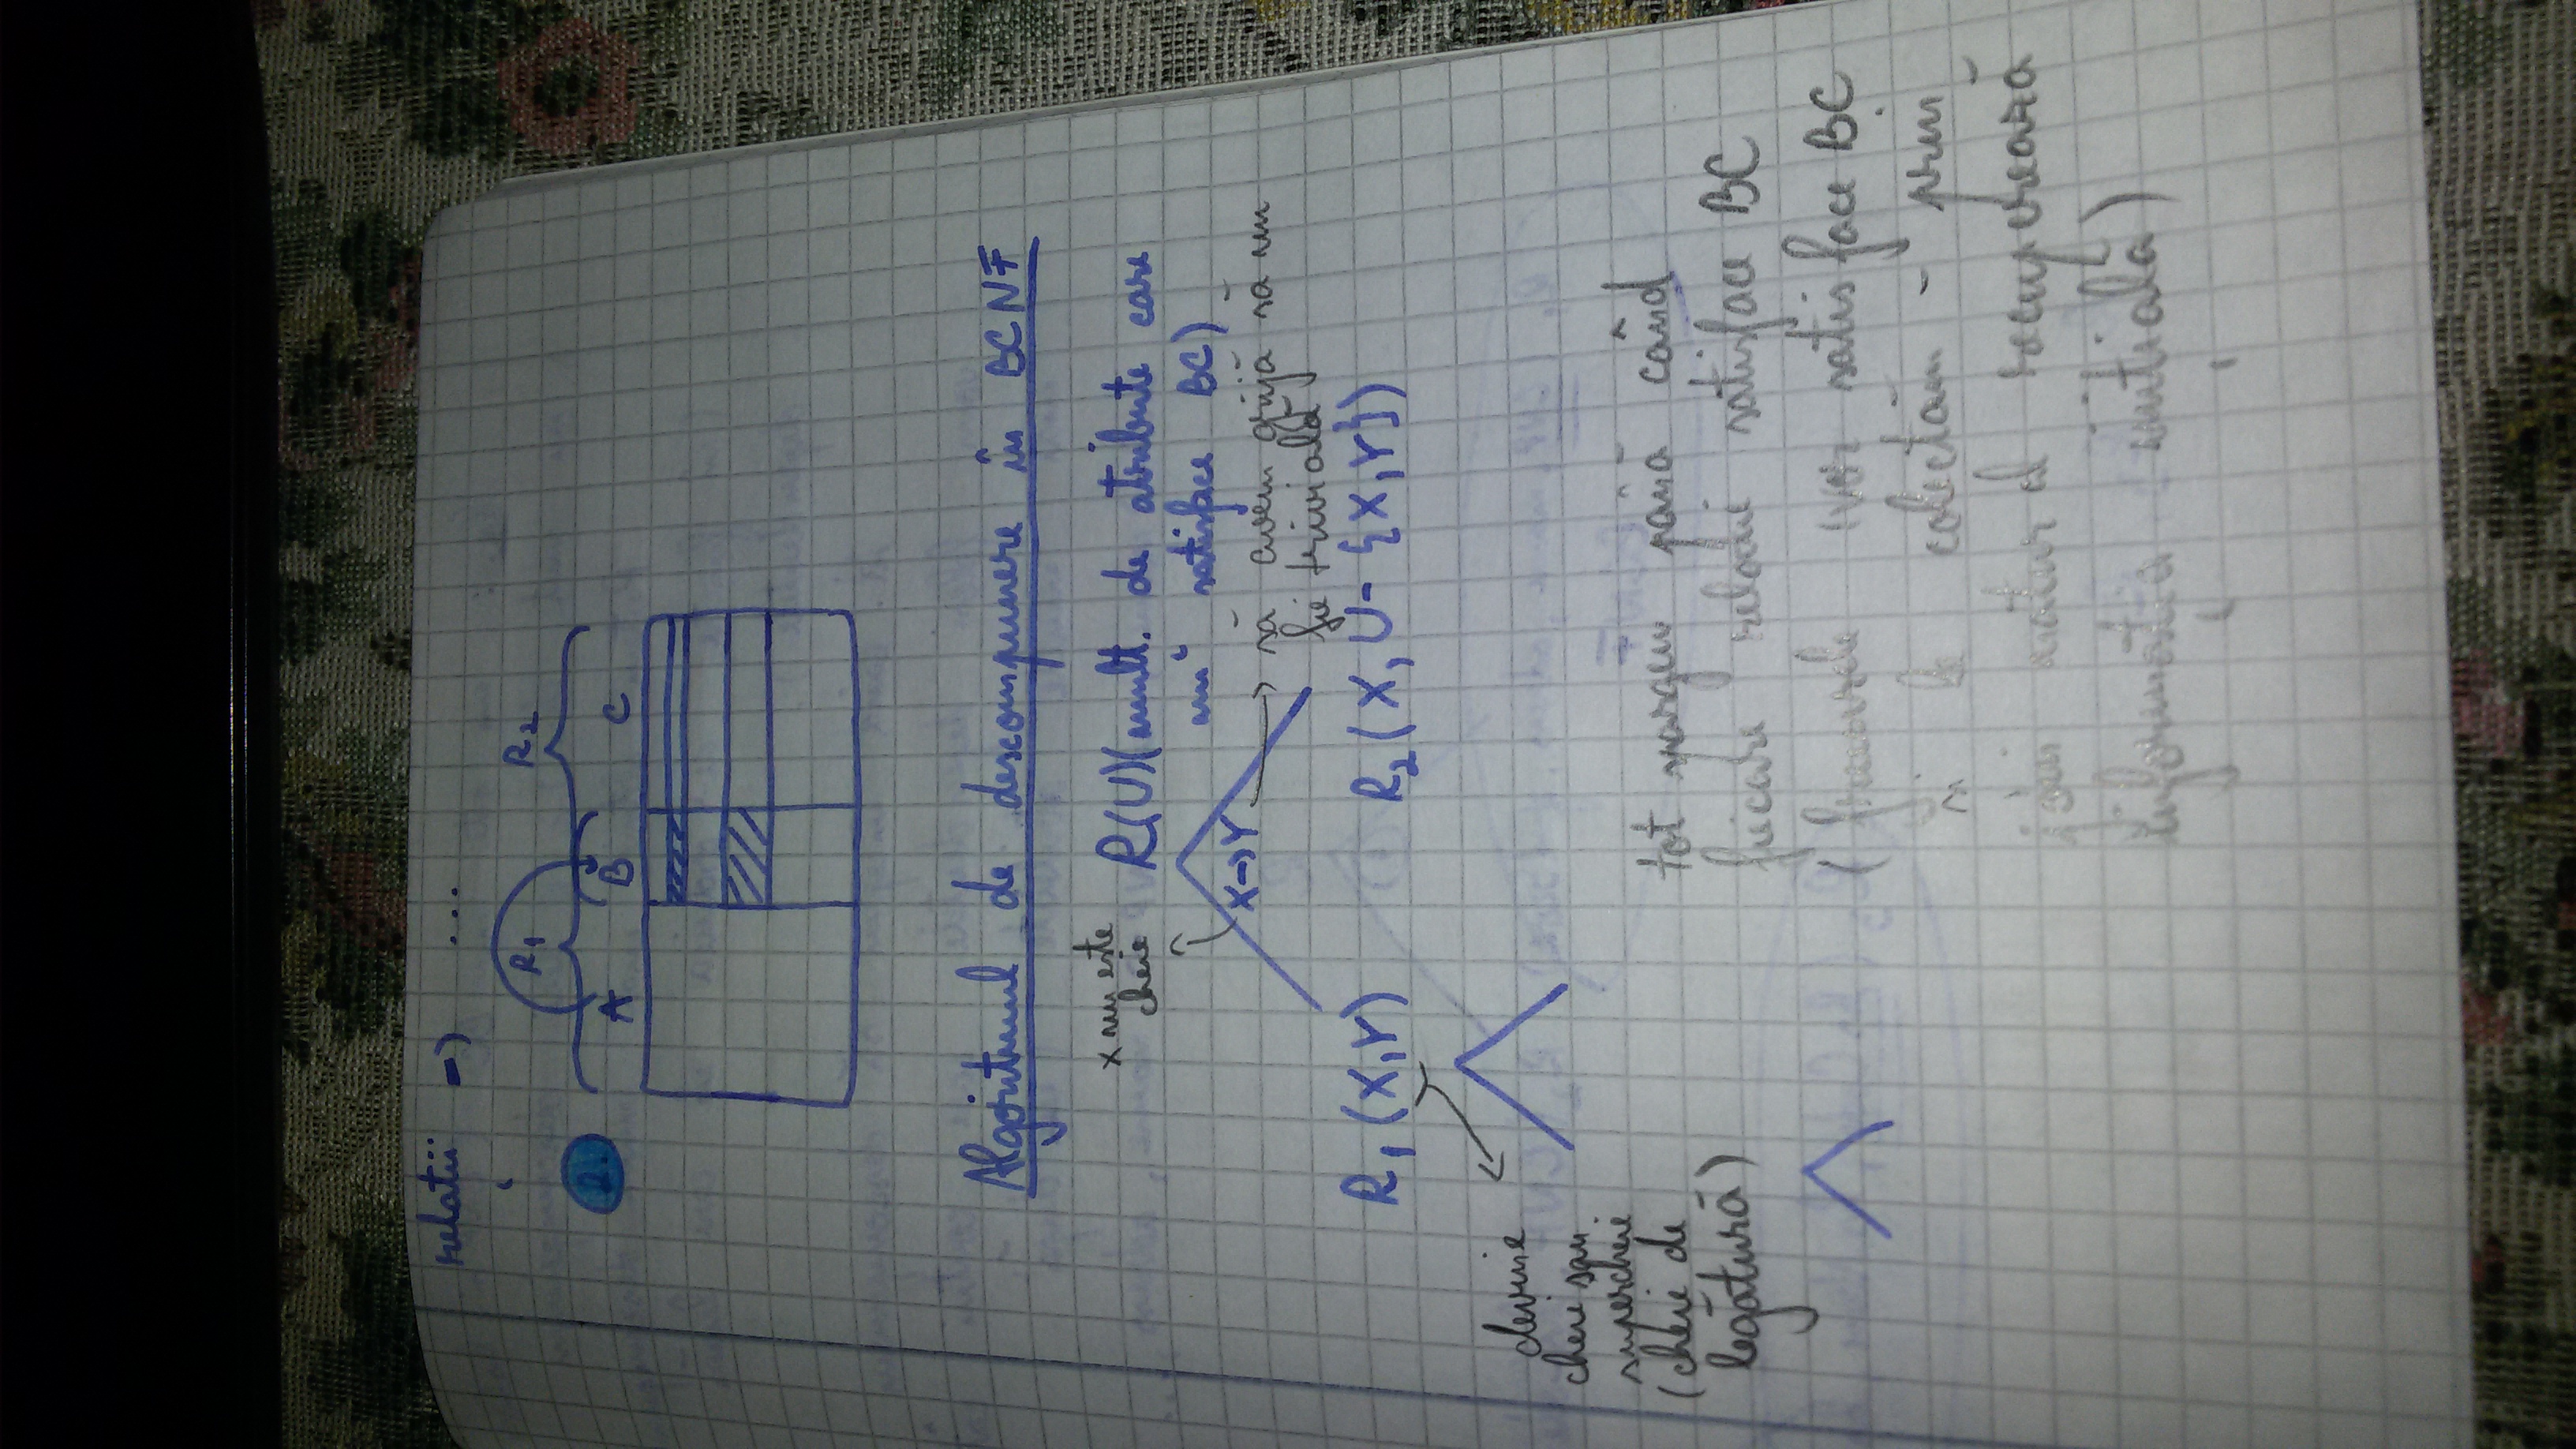 relații => ...
R1 R2
2.
A B C
Algoritmul de descompunere în BCNF
x nu este
cheie
R(U)(mult. de atribute care
nu satisface BC)
X→Y
să avem grijă să nu
fie trivială
R1(X,Y)
R2(X, U- {X,Y})
devine
cheie sau
supercheie
(cheie de
legătură)
tot spargem până când
fiecare relație satisface BC
(frunzele vor satisface BC
și le colectăm - prin
join natural recuperează
informația inițială)